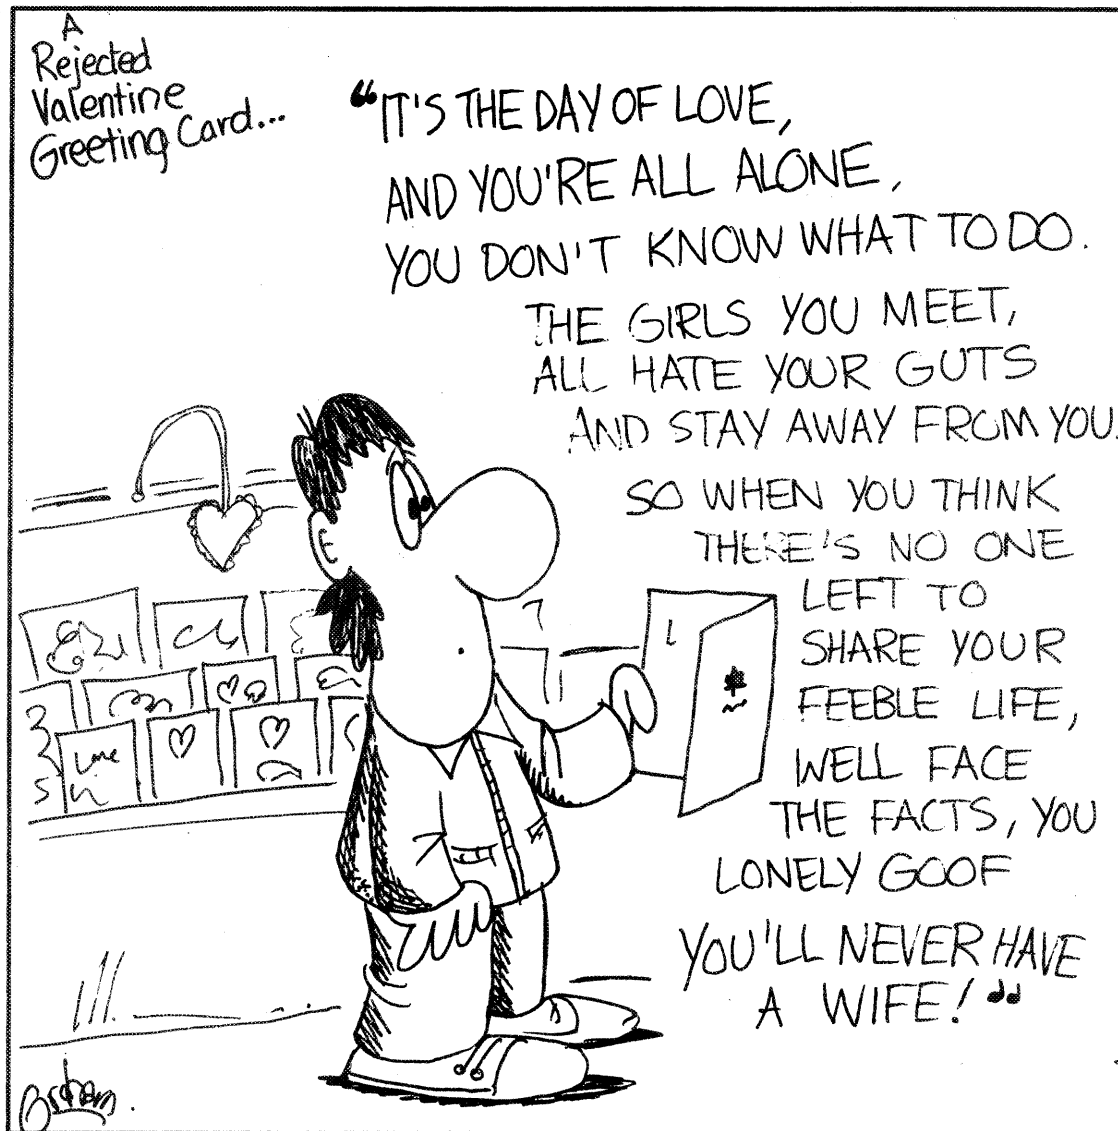 A
Rejected
Valentine
Greeting Card...
“IT'S THE DAY OF LOVE,
AND YOU'RE ALL ALONE,
YOU DON'T KNOW WHAT TO DO.
THE GIRLS YOU MEET,
ALL HATE YOUR GUTS
AND STAY AWAY FROM YOU.
SO WHEN YOU THINK
THERE'S NO ONE
LEFT TO
SHARE YOUR
FEEBLE LIFE,
WELL FACE
THE FACTS, YOU
LONELY GOOF
YOU'LL NEVER HAVE
A WIFE!”
Love
Graham.